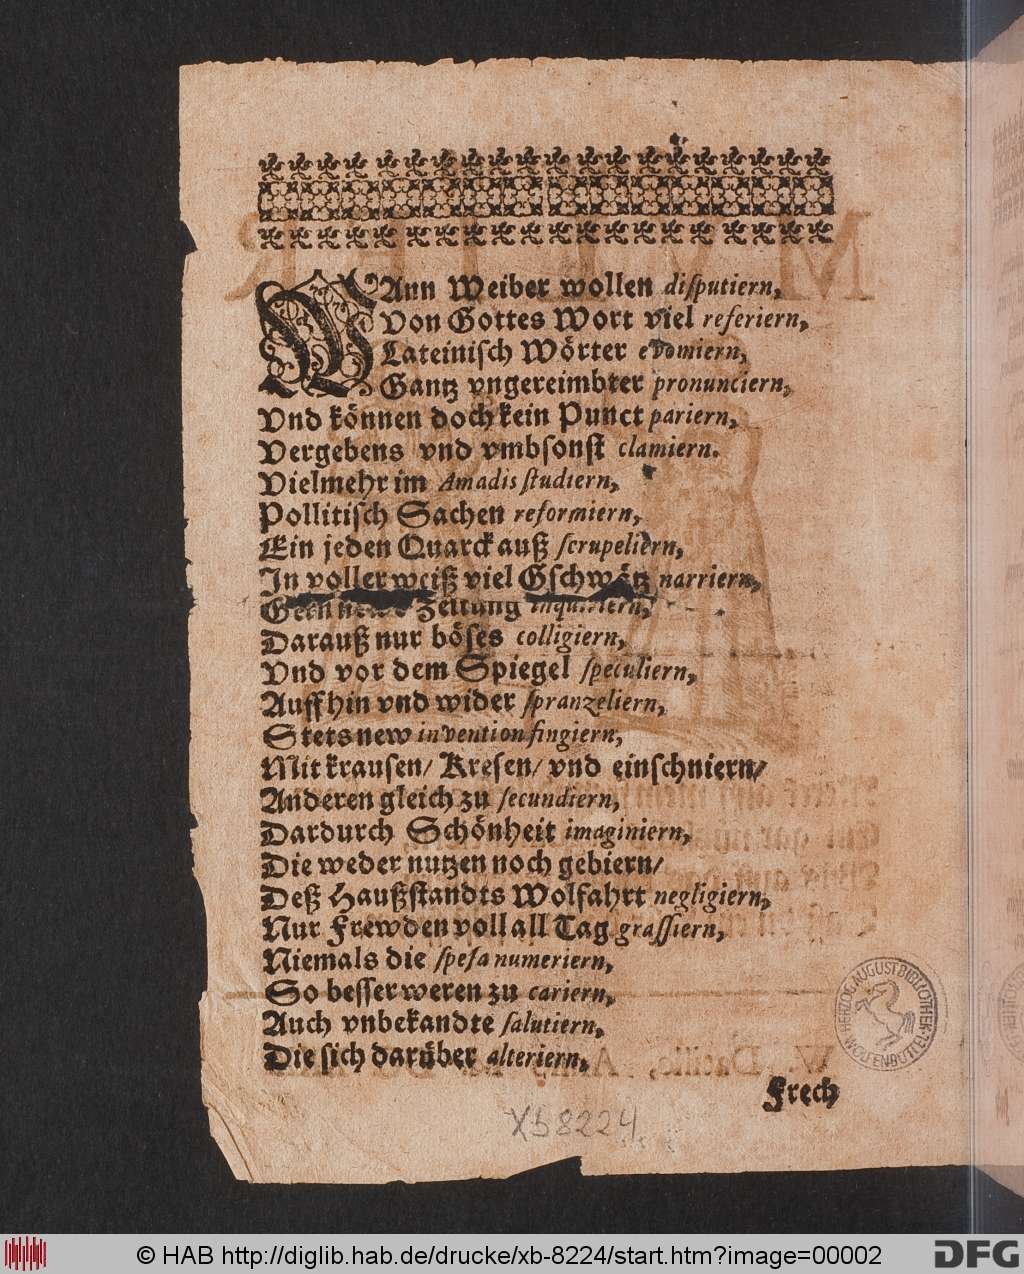 WAnn Weiber wollen disputiern,
Von Gottes Wort viel referiern,
Lateinisch Wörter evomiern,
Gantz vngereimbter pronunciern,
Vnd können doch kein Punct pariern,
Vergebens vnd vmbsonst clamiern.
Vielmehr im Amadis studiern,
Pollitisch Sachen reformiern,
Ein jeden Quarck auß scrupeliern,
In voller weiß viel Gschwätz narriern,
Zeitung inquiriern,
Darauß nur böses colligiern,
Vnd vor dem Spiegel speculiern,
Auff hin vnd wider spranzeliern,
Stets new invention fingiern,
Mit krausen/ Kresen/ vnd einschniern/
Anderen gleich zu secundiern,
Dardurch Schönheit imaginiern,
Die weder nutzen noch gebiern/
Deß Haußstandts Wolfahrt negligiern,
Nur Frewden voll all Tag grassiern,
Niemals die spesa numeriern,
So besser weren zu cariern,
Auch vnbekandte salutiern,
Die sich darüber alteriern,
Frech
Xb 8224
HERZOG AUGUST BIBLIOTHEK WOLFENBÜTTEL
© HAB http://diglib.hab.de/drucke/xb-8224/start.htm?image=00002
DFG